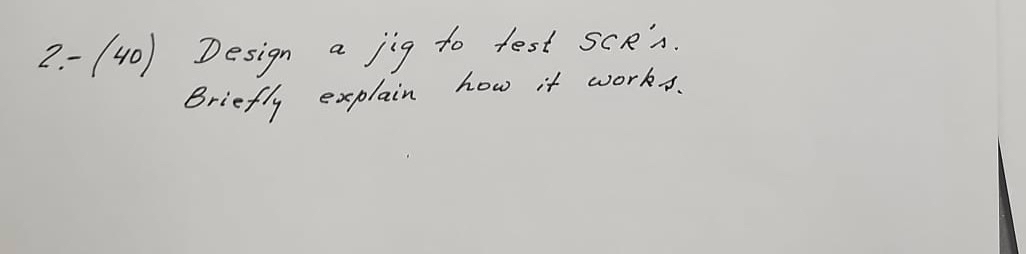 2.- (40) Design a jig to test SCR's.
Briefly explain how it works.